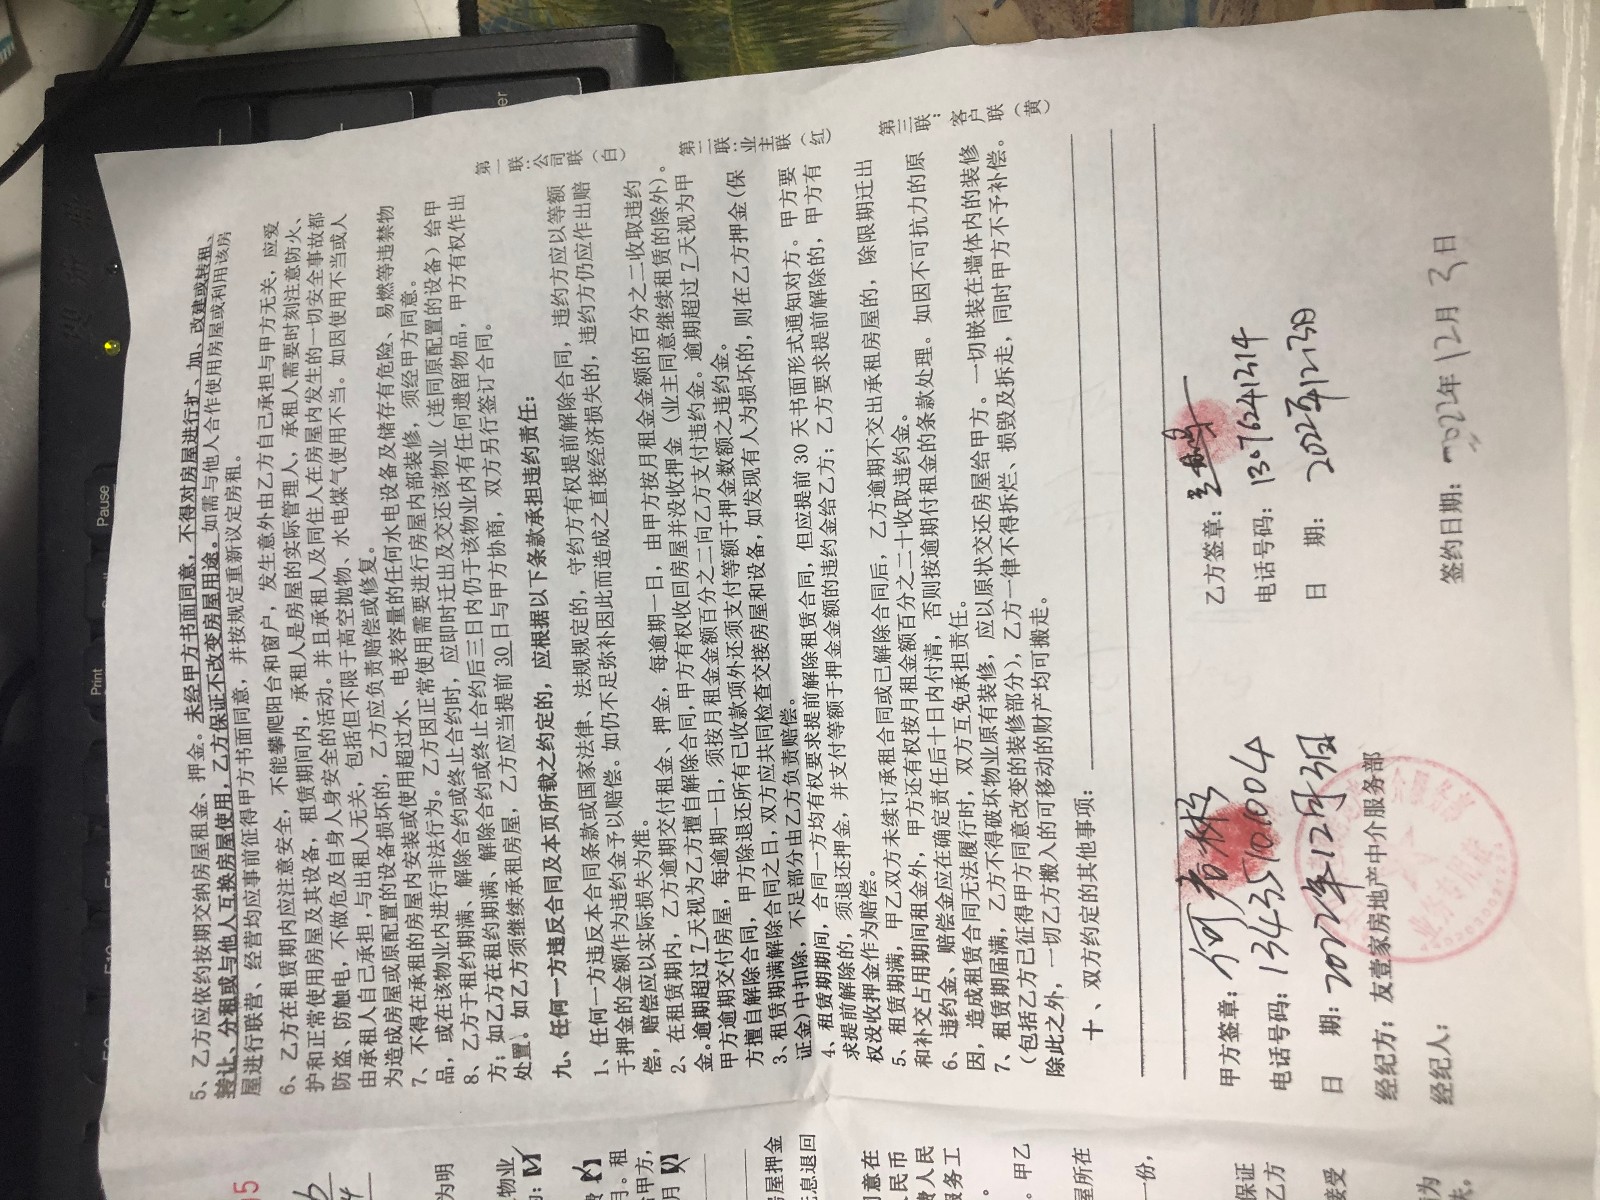 5、乙方应依约按期交纳房屋租金、押金。未经甲方书面同意，不得对房屋进行扩、加、改建或转租、
转让、分租或与他人互换房屋使用，乙方保证不改变房屋用途。如需与他人合作使用房屋或利用该房
屋进行联营、经营均应事前征得甲方书面同意，并按规定重新议定房租。
6、乙方在租赁期内应注意安全，不能攀爬阳台和窗户，发生意外由乙方自己承担与甲方无关，应爱
护和正常使用房屋及其设备，租赁期间内，承租人是房屋的实际管理人，承租人需要时刻注意防火、
防盗、防触电，不做危及自身人身安全的活动。并且承租人及同住人在房屋内发生的一切安全事故都
由承租人自己承担，与出租人无关，包括但不限于高空抛物、水电煤气使用不当。如因使用不当或人
为造成房屋或原配置的设备损坏的，乙方应负责赔偿或修复。
7、不得在承租的房屋内安装或使用超过水、电表容量的任何水电设备及储存有危险、易燃等违禁物
品，或在该物业内进行非法行为。乙方因正常使用需要进行房屋内部装修，须经甲方同意。
8、乙方于租约期满、解除合约或终止合约时，应即时迁出及交还该物业（连同原配置的设备）给甲
方；如乙方在租约期满、解除合约或终止合约后三日内仍于该物业内有任何遗留物品，甲方有权作出
处置。如乙方须继续承租房屋，乙方应当提前30日与甲方协商，双方另行签订合同。
九、任何一方违反合同及本页所载之约定的，应根据以下条款承担违约责任：
1、任何一方违反本合同条款或国家法律、法规规定的，守约方有权提前解除合同，违约方应以等额
于押金的金额作为违约金予以赔偿。如仍不足弥补因此而造成之直接经济损失的，违约方仍应作出赔
偿，赔偿应以实际损失为准。
2、在租赁期内，乙方逾期交付租金、押金，每逾期一日，由甲方按月租金金额的百分之二收取违约
金。逾期超过7天视为乙方擅自解除合同，甲方有权收回房屋并没收押金（业主同意继续租赁的除外）。
甲方逾期交付房屋，每逾期一日，须按月租金金额百分之二向乙方支付违约金。逾期超过7天视为甲
方擅自解除合同，甲方除退还所有已收款项外还须支付等额于押金数额之违约金。
3、租赁期满解除合同之日，双方应共同检查交接房屋和设备，如发现有人为损坏的，则在乙方押金（保
证金）中扣除，不足部分由乙方负责赔偿。
4、租赁期期间，合同一方均有权要求提前解除租赁合同，但应提前30天书面形式通知对方。甲方要
求提前解除的，须退还押金，并支付等额于押金金额的违约金给乙方；乙方要求提前解除的，甲方有
权没收押金作为赔偿。
5、租赁期满，甲乙双方未续订承租合同或已解除合同后，乙方逾期不交出承租房屋的，除限期迁出
和补交占用期间租金外，甲方还有权按月租金额百分之二十收取违约金。
6、违约金、赔偿金应在确定责任后十日内付清，否则按逾期付租金的条款处理。如因不可抗力的原
因，造成租赁合同无法履行时，双方互免承担责任。
7、租赁期届满，乙方不得破坏物业原有装修，应以原状交还房屋给甲方。一切嵌装在墙体内的装修
（包括乙方已征得甲方同意改变的装修部分），乙方一律不得拆烂、损毁及拆走，同时甲方不予补偿。
除此之外，一切乙方搬入的可移动的财产均可搬走。
十、双方约定的其他事项：
甲方签章：何者林
电话号码：13435101004
日 期：2022年12月3日
经纪方：友壹家房地产中介服务部
经纪人：
乙方签章：
电话号码：13076241314
日 期：2022年12月3日
签约日期：2022年12月3日
第一联：公司联（白）
第二联：业主联（红）
第三联：客户联（黄）
为明
物业
月。租
甲方，
月
房屋押金
息退回
同意在
民币
费人民
服务工
。甲乙
屋所在
一份，
保证
乙方
接受
为
Pause
Print